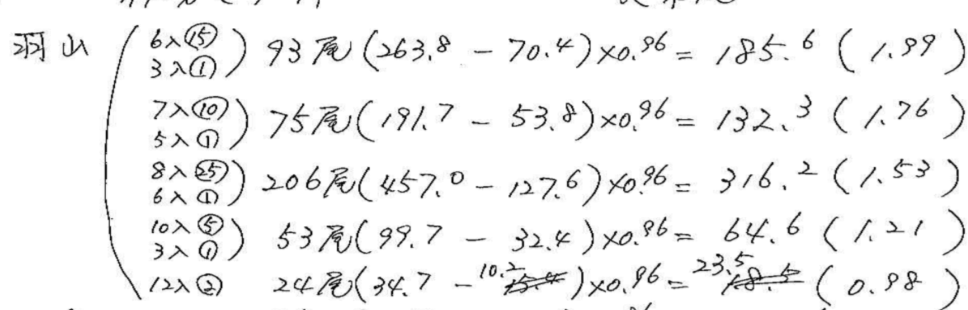 羽山
6入⑮
3入①
93尾(263.8 - 70.4)×0.96 = 185.6 (1.99)
7入⑩
5入①
75尾(191.7 - 53.8)×0.96 = 132.3 (1.76)
8入㉕
6入①
206尾(457.0 - 127.6)×0.96 = 316.2 (1.53)
10入⑤
3入①
53尾(99.7 - 32.4)×0.96 = 64.6 (1.21)
12入②
24尾(34.7 - 10.2)×0.96 = 23.5 (0.98)